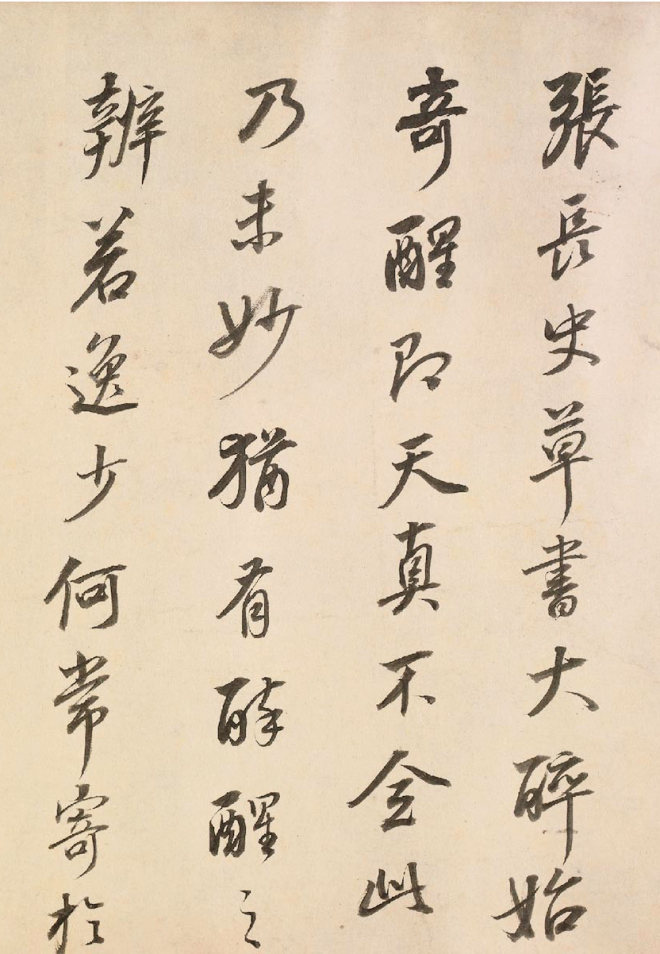 張長史草書大醉始
竒醒即天真不全此
乃未妙猶有醉醒之
辨若逸少何常寄於